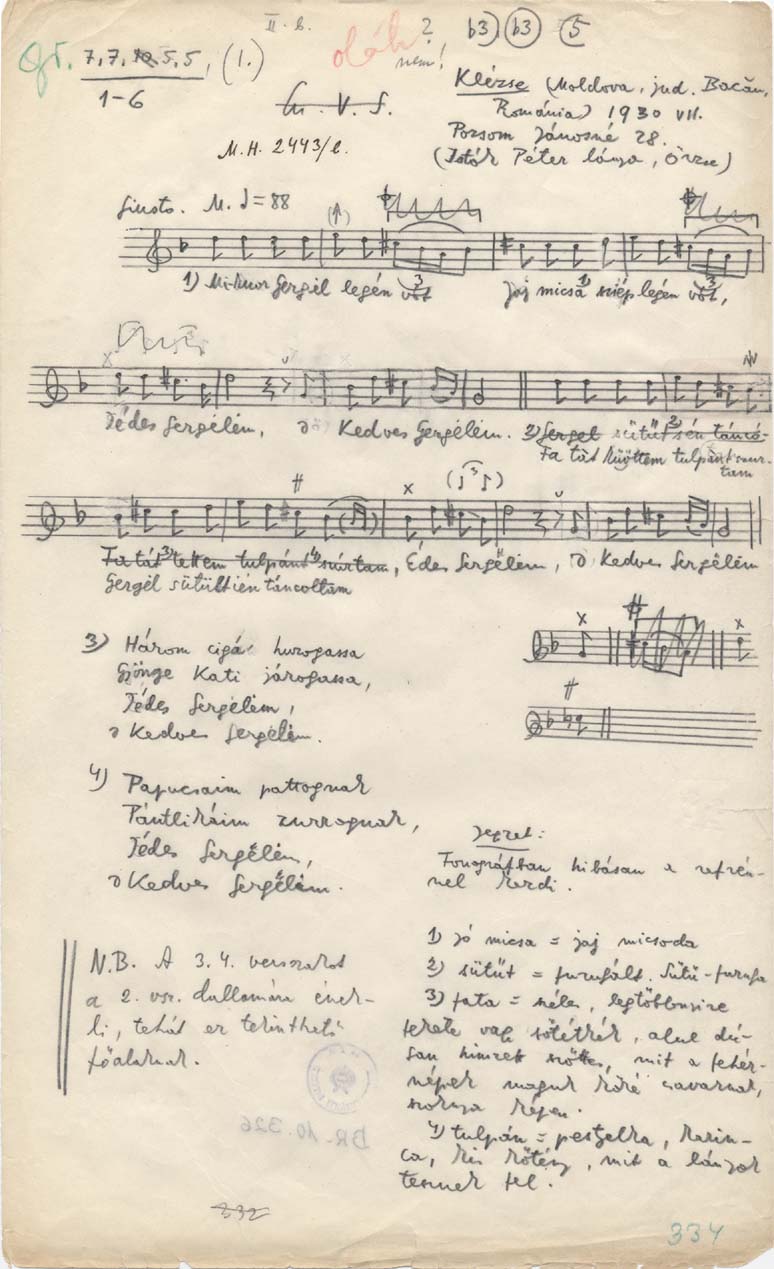 II. b.
oláh ?
nem!
b3) (b3) (5
7, 7, 5, 5, (1.)
1-6
M. H. 2443/e.
Klézse (Moldova, jud. Bacău,
Románia) 1930 VII.
Pozsom Jánosné 28.
(Istók Péter lánya, Örzse)
Giusto. M. ♩= 88
1) Mi-kor Gergél legén vót Jaj micsa 1) szép legén vót,
Édes Gergélém, ő Kedves Gergélém. 2) Gergel sütüt 2) s én tánco-
Fa tát kötöttem tulpánt szur-
tam
Fa tát 3) tettem tulpánt 4) szúrtam, Édes Gergélém, ő Kedves Gergélém
Gergél sütült én táncoltam
3) Három cigá huzogassa
Gyönge Kati járogassa,
Édes Gergélém,
ő Kedves Gergélém.
4) Papucsaim pattognak
Pántlikáim zurrognak,
Édes Gergélém,
ő Kedves Gergélém.
Jegyzet:
Fonográfban hibásan a refrén-
nel kezdi.
N.B. A 3. 4. versszakot
a 2. vsz. dallamára ének-
li, tehát ez tekinthető
főalaknak.
1) jó micsa = jaj micsoda
2) sütüt = furugált. Sütü-furuga
3) fata = széles, legtöbbnyire
fekete vagy sötétkék, alul dú-
san hímzett szőttes, mit a fehér-
népek maguk köré csavarnak,
szoknya képen.
4) tulpán = pestyelka, karin-
ca, kis kötény, mit a lányok
tesznek fel.
BR. 10.326
332
334